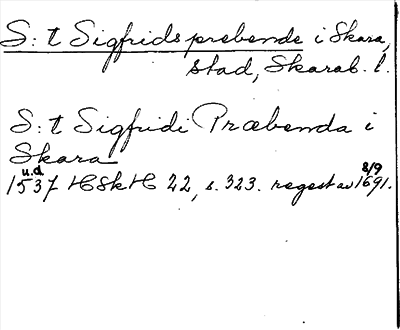 S:t Sigfrids prebende i Skara,
stad, Skarab. l.
S:t Sigfridi Præbenda i
Skara
u.d. 8/9
1537 HSkH 22, s. 323. regest av 1691.